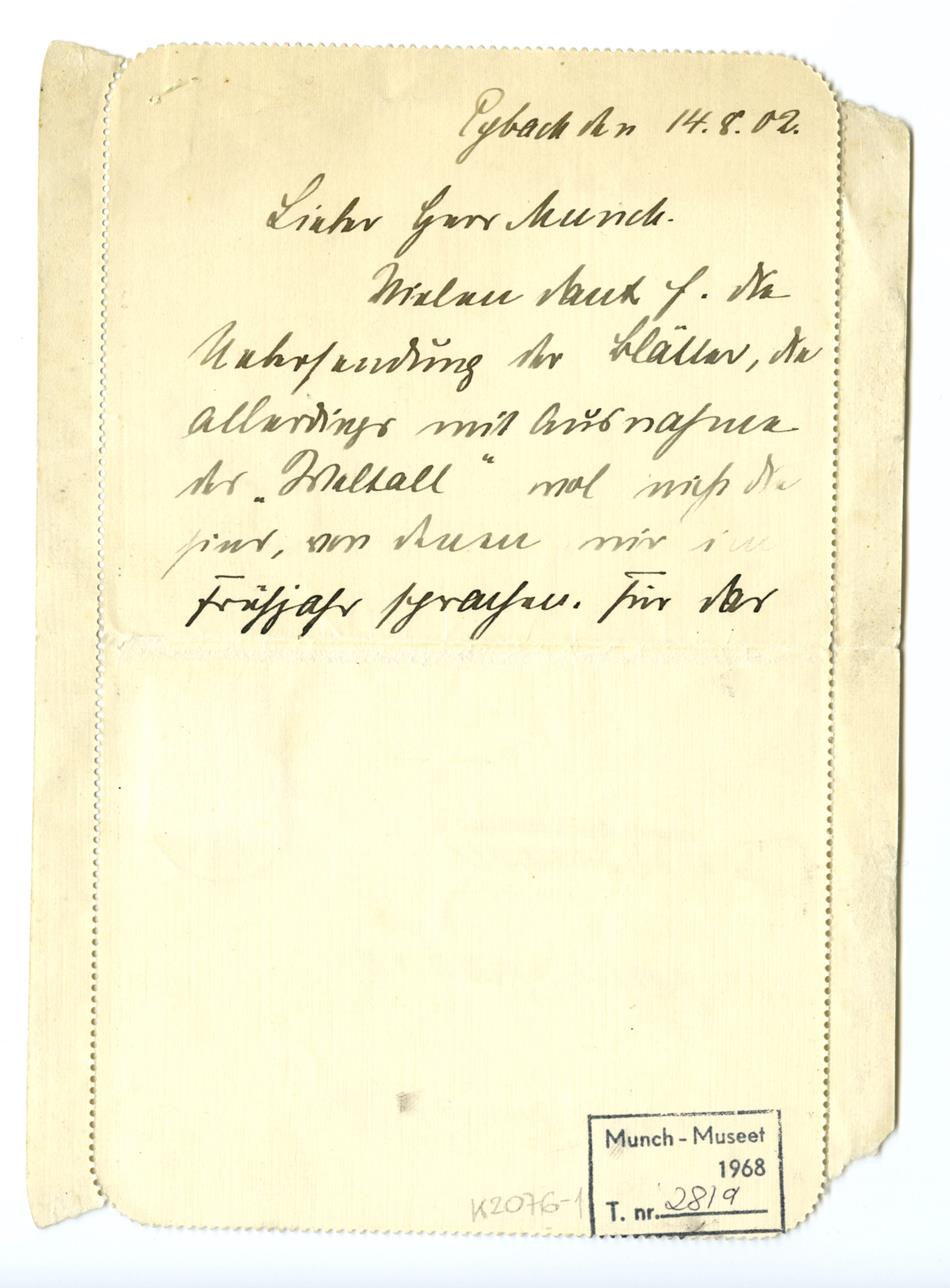 Eybach den 14.8.02.
Lieber Herr Munch.
Vielen Dank f. die
Uebersendung der Blätter, die
allerdings mit Ausnahme
des „Weltall" wol nicht die
sind, von denen wir im
Frühjahr sprachen. Für das
Munch-Museet
1968
K2076-1
T. nr. 2819